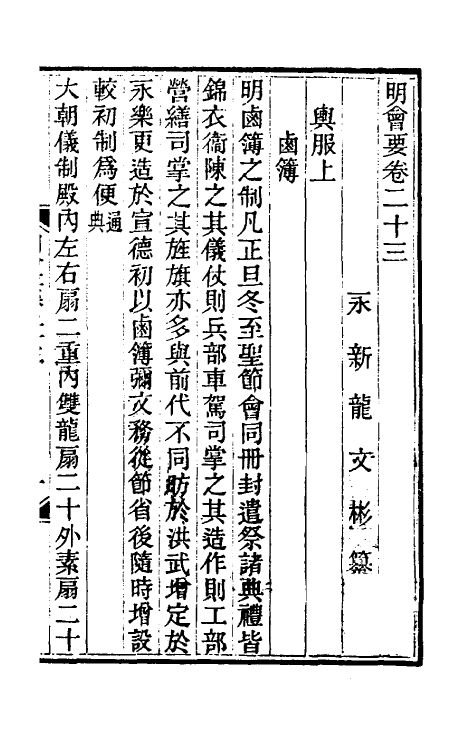 明會要卷二十三
永新龍文彬纂
輿服上
鹵簿
明鹵簿之制凡正旦冬至聖節會同冊封遣祭諸典禮皆
錦衣衞陳之其儀仗則兵部車駕司掌之其造作則工部
營繕司掌之其旌旗亦多與前代不同昉於洪武增定於
永樂更造於宣德初以鹵簿彌文務從節省後隨時增設
較初制爲便通典
大朝儀制殿內左右扇二重內雙龍扇二十外素扇二十